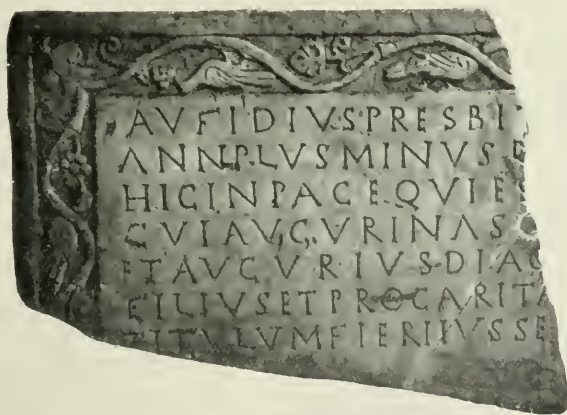 AVFIDIVS·PRESBI
ANN·PLVSMINVS
HICINPACEQVIE
CVIAVGVRINAS
ETAVGVRIVS·DIAC
FILIVSETPROCARITA
TITVLVMFIERIIVSSE